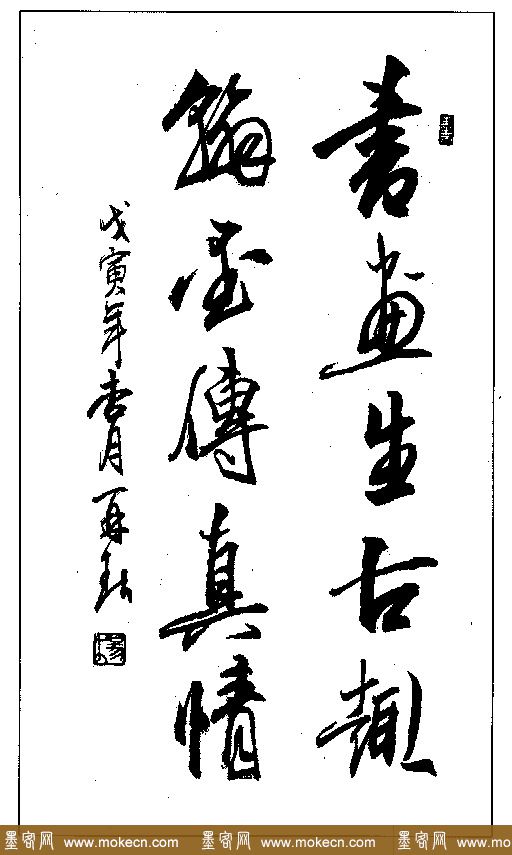 書畫生古趣
翰墨傳真情
戊寅年杏月
墨客网 www.mokecn.com 墨客网 www.mokecn.com 墨客网 www.mo